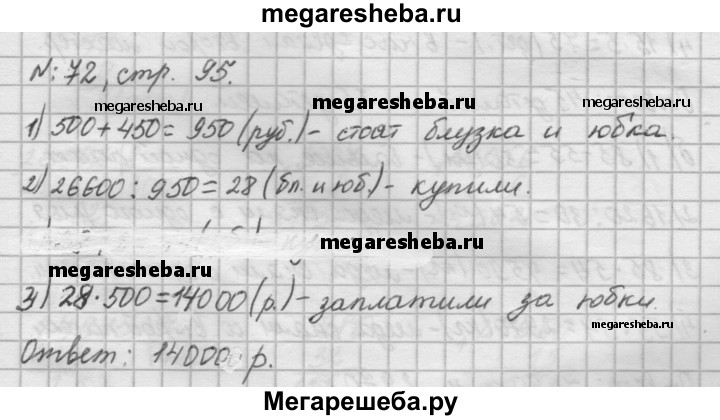 megaresheba.ru
N: 72, стр. 95.
megaresheba.ru megaresheba.ru megaresheba.ru
1) 500+450= 950 (руб.) - стоят блузка и юбка.
2) 26600 : 950 = 28 (бл. и юб.) - купили.
megaresheba.ru
megaresheba.ru
3) 28·500=14000 (р.) - заплатили за юбки.
megaresheba.ru
Ответ: 14000 р.
Мегарешеба.ру